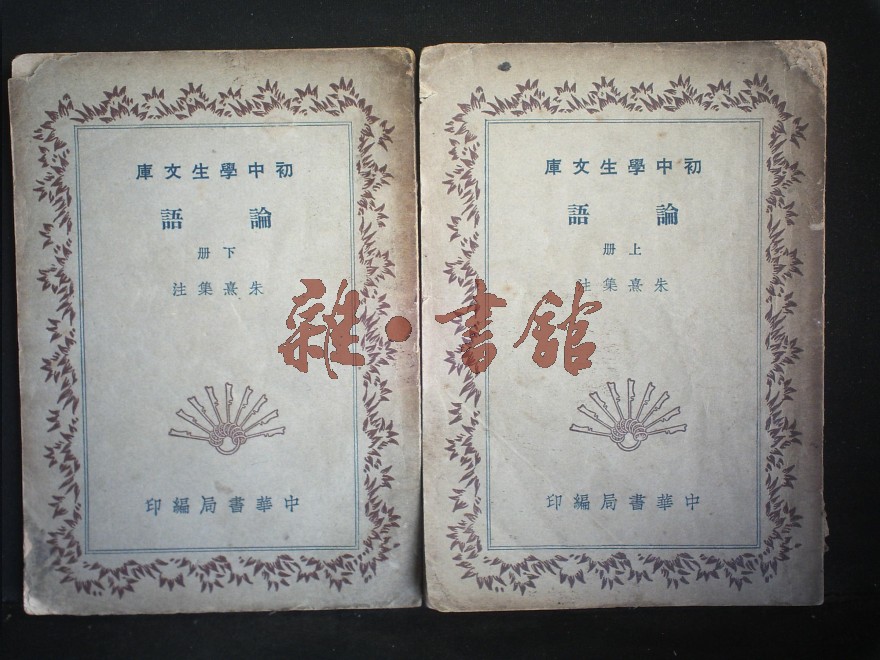 初中學生文庫
論語
下册
朱熹集注
中華書局編印
初中學生文庫
論語
上册
朱熹集注
中華書局編印
雜·書館